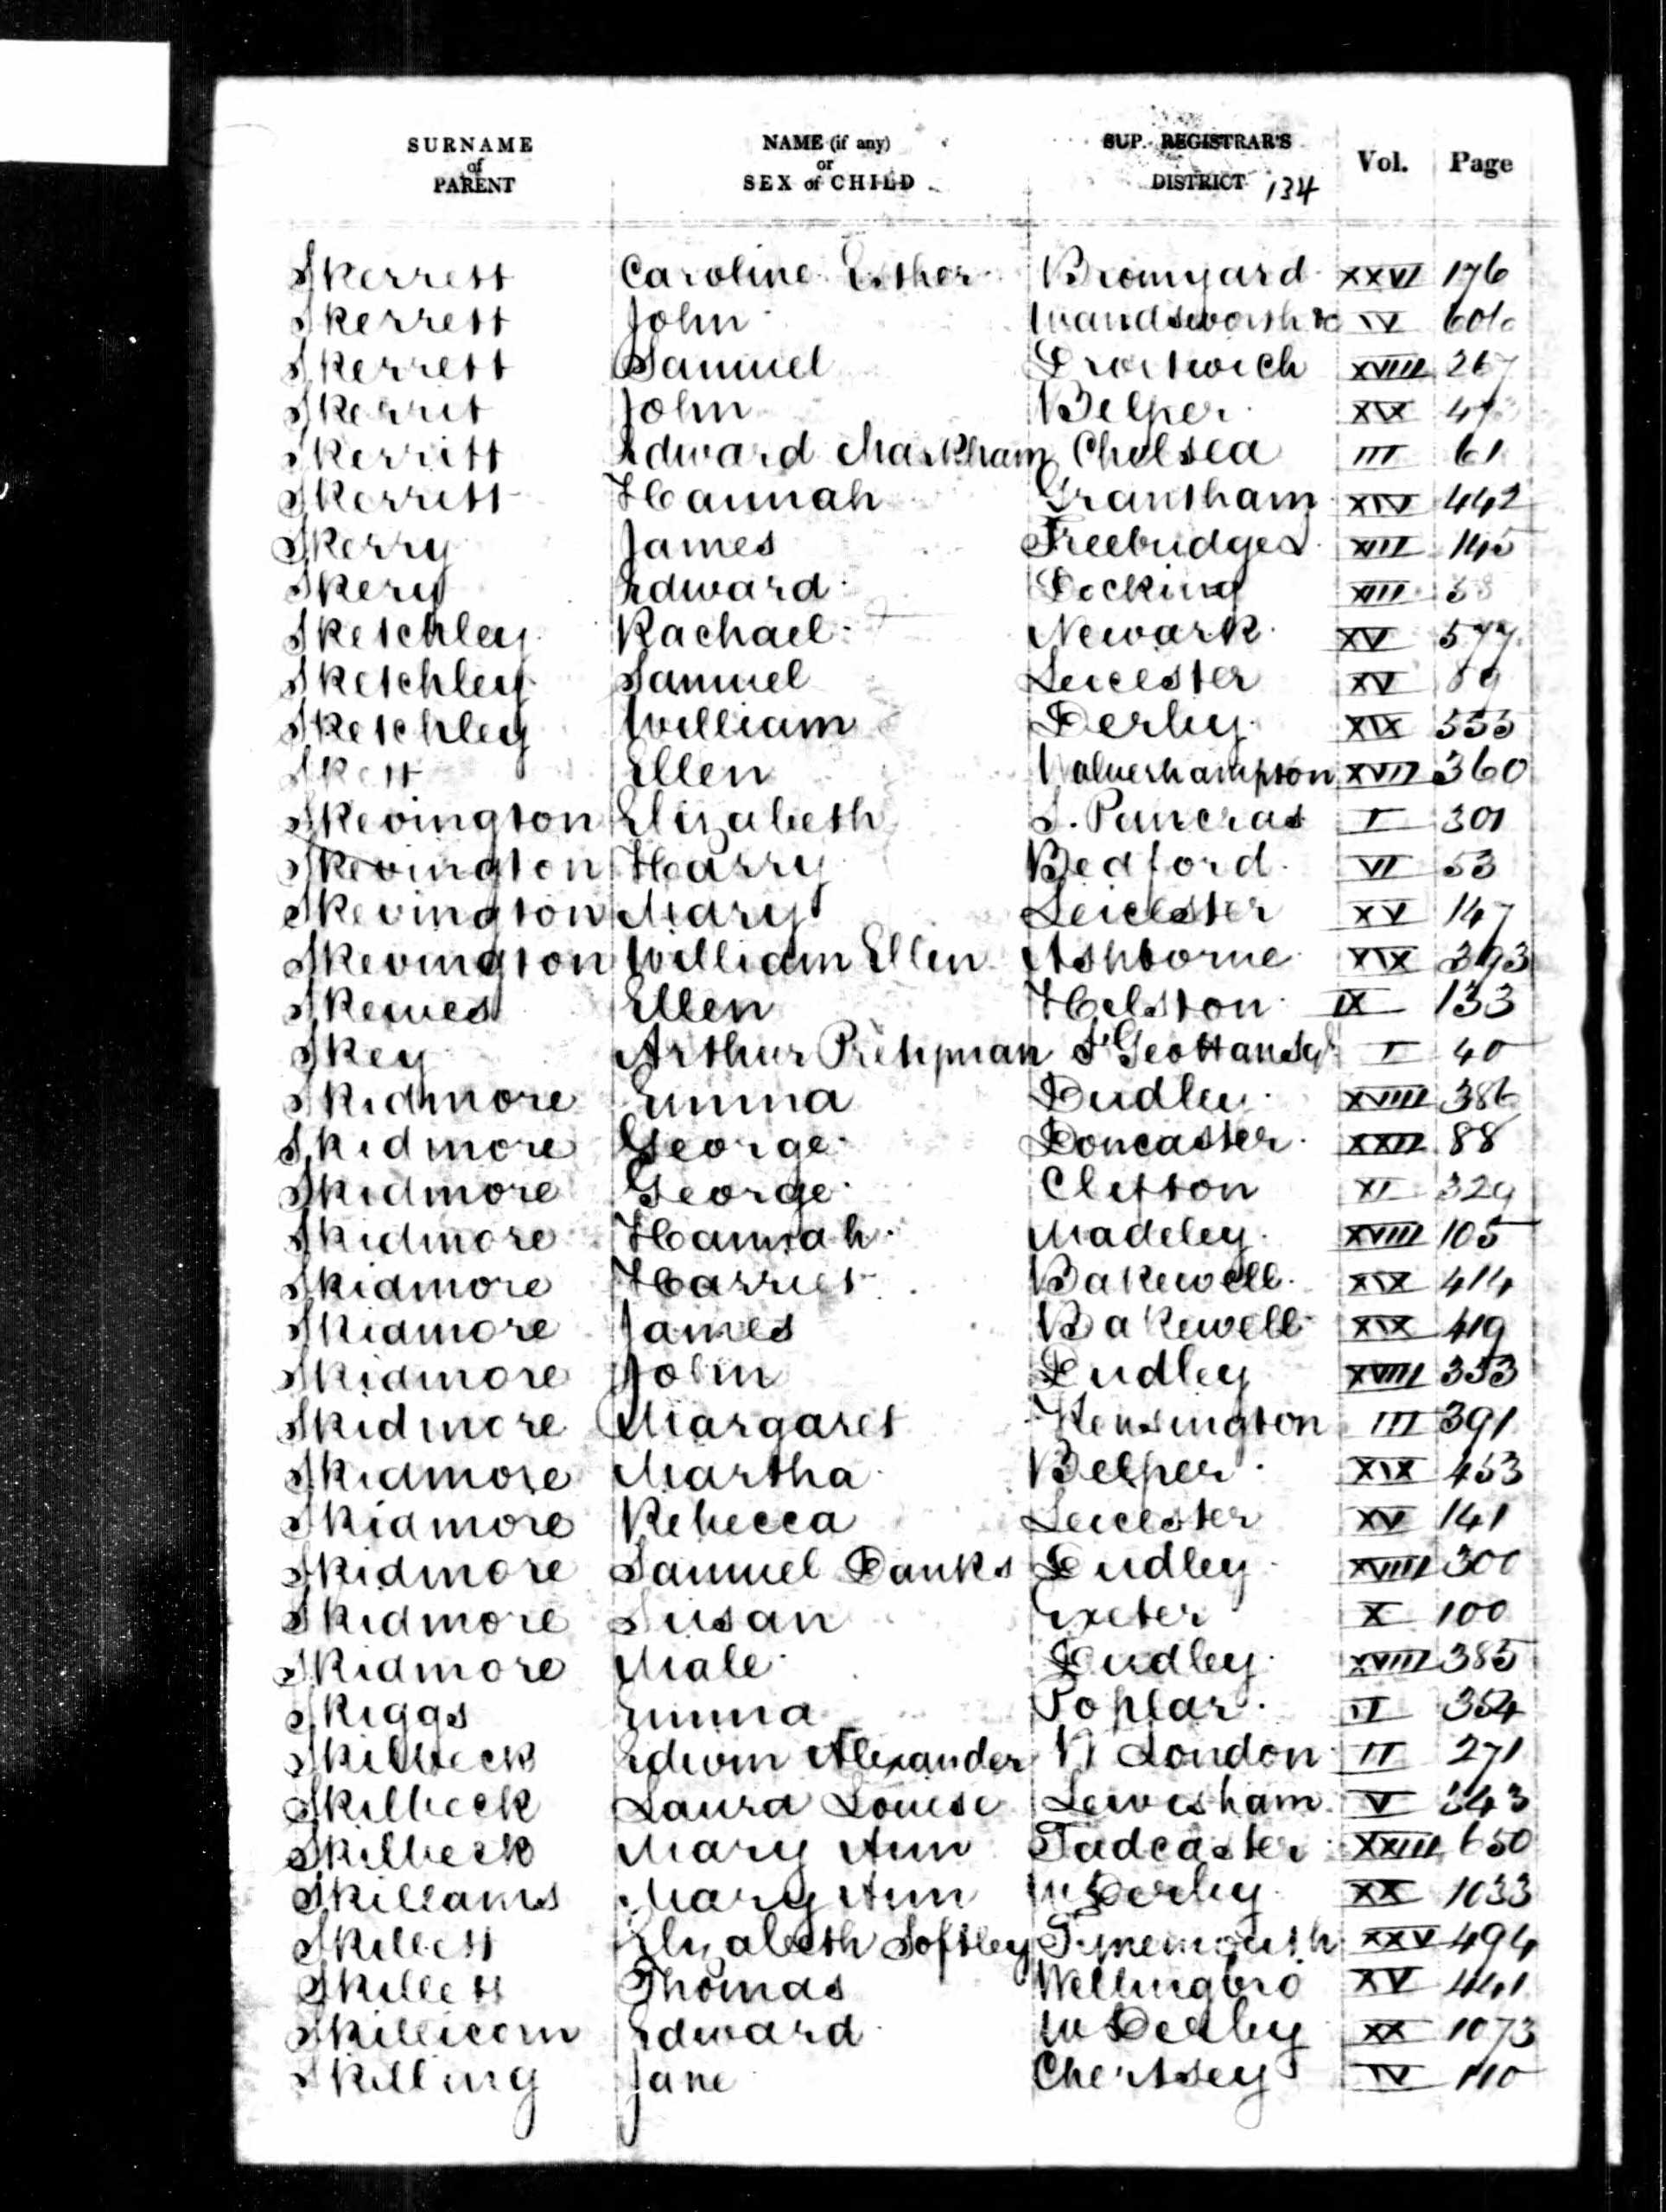 SURNAME of PARENT NAME (if any) or SEX of CHILD SUP. REGISTRAR'S DISTRICT 134 Vol. Page
Skerrett Caroline Esther Bromyard XXVI 176
Skerrett John Wandsworth &c IV
Skerrett Samuel Droitwich XVIII 267
Skerrit John Belper XIX
Skerritt Edward Markham Chelsea III 61
Skerritt Hannah Grantham XIV 442
Skerry James Freebridge &c XIII 145
Skery Edward Docking XIII
Sketchley Rachael Newark XV 577
Sketchley Samuel Leicester XV 89
Sketchley William Derby XIX 555
Skett Ellen Wolverhampton XVII 360
Skevington Elizabeth S. Pancras I 301
Skevington Harry Bedford VI 53
Skevington Mary Leicester XV 147
Skevington William Ellin Ashborne XIX 393
Skewes Ellen Helston IX 133
Skey Arthur Pritchman St Geo Han Sqr I 40
Skidmore Emma Dudley XVIII 386
Skidmore George Doncaster XXII 88
Skidmore George Clifton XI 329
Skidmore Hannah Madeley XVIII 105
Skidmore Harriet Bakewell XIX 414
Skidmore James Bakewell XIX 419
Skidmore John Dudley XVIII 333
Skidmore Margaret Kensington III 391
Skidmore Martha Belper XIX 453
Skidmore Rebecca Leicester XV 141
Skidmore Samuel Danks Dudley XVIII 300
Skidmore Susan Exeter X 100
Skidmore Male Dudley XVIII 385
Skiggs Emma Poplar II 354
Skilbeck Edwin Alexander W London II 271
Skilbeck Laura Louise Lewisham V 343
Skilbeck Mary Ann Tadcaster XXIII 650
Skillams Mary Ann W Derby XX 1033
Skillett Elizabeth Softley Tynemouth XXV 494
Skillett Thomas Wellingbro XV 441
Skillicorn Edward W Derby XX 1073
Skilling Jane Chertsey IV 110